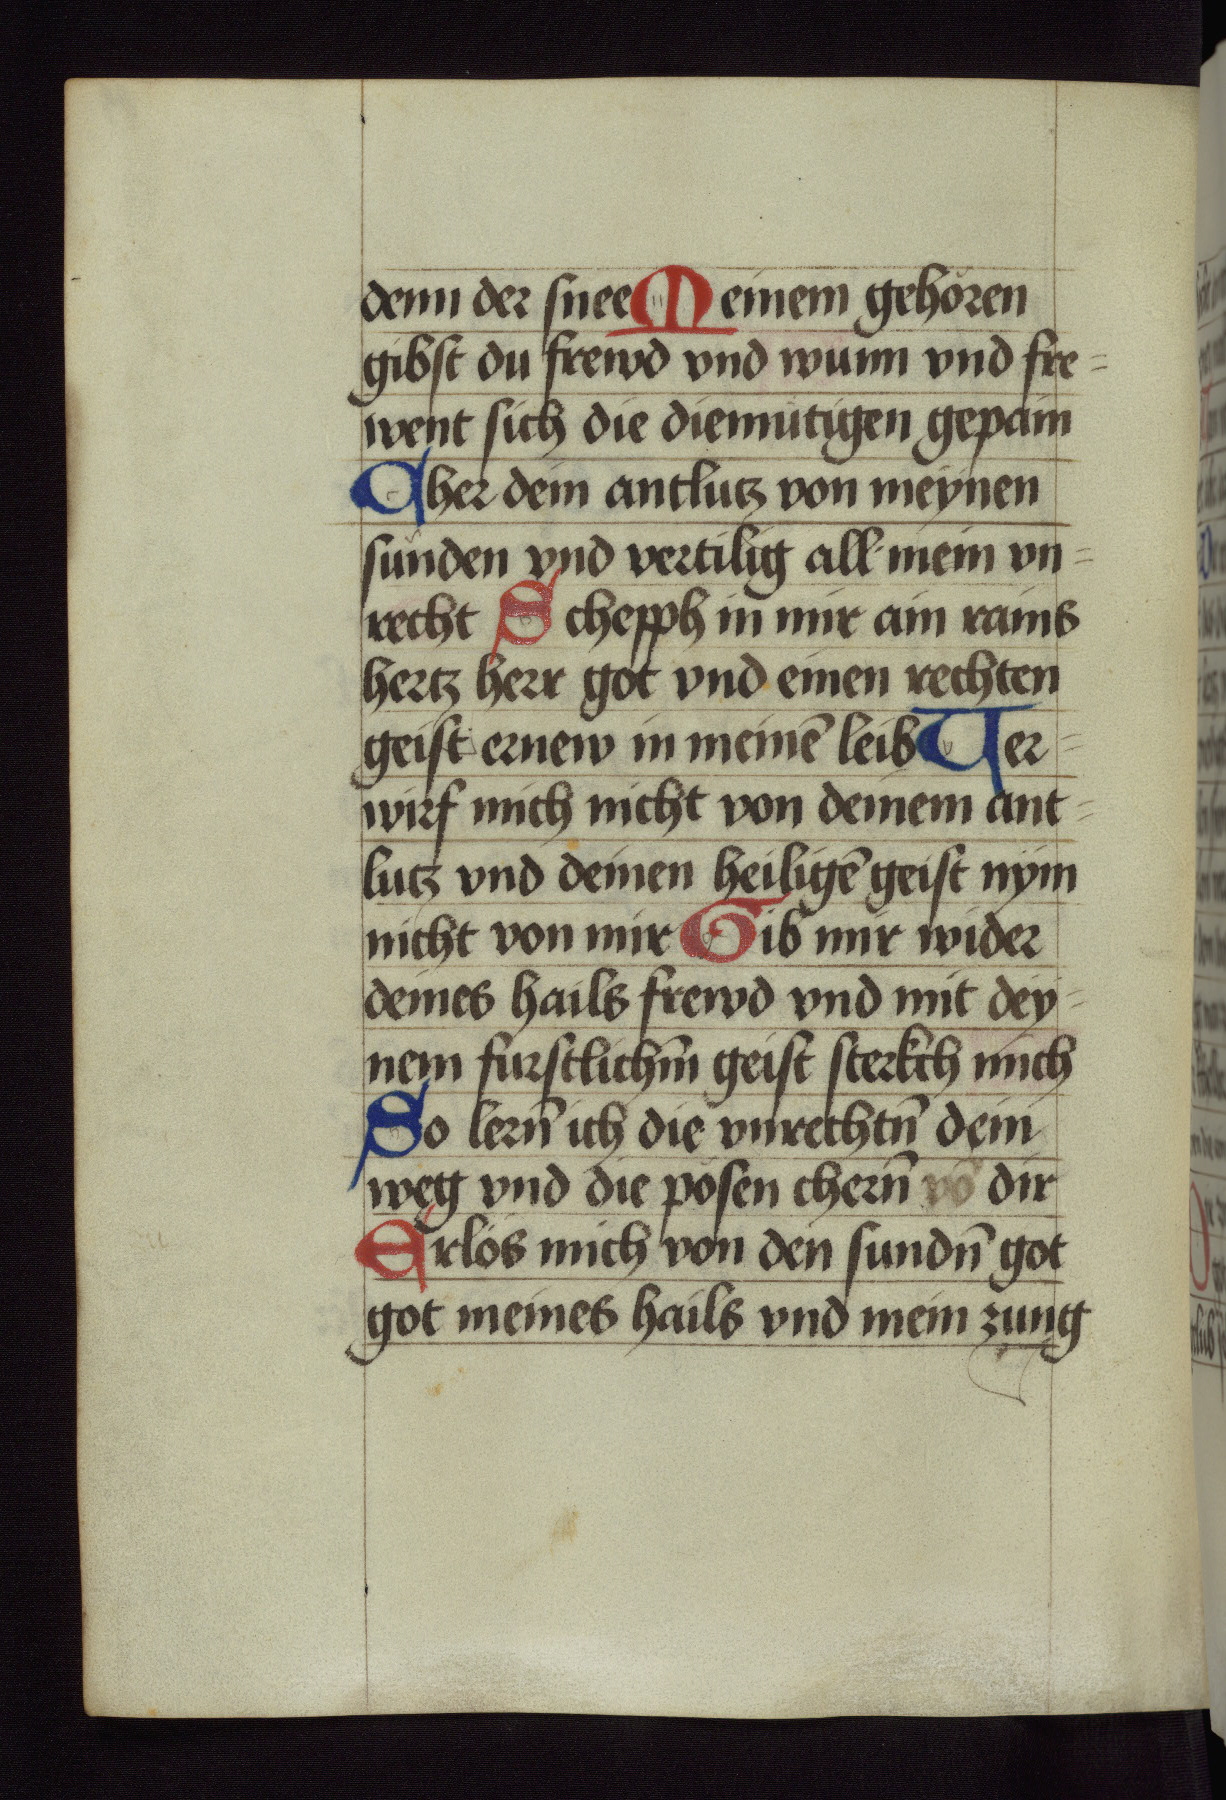 denn der snee Meinem gehören
gibst du frewd vnd wunn vnd fre=
went sich die diemütigen gepain
Cher dein antlutz von meynen
sünden vnd vertilig all mein vn=
recht Schepph in mir ain rains
hertz herr got vnd einen rechten
geist ernew in meinē leib Ver=
wirf mich nicht von deinem ant=
lutz vnd deinen heiligē geist nÿm
nicht von mir Gib mir wider
deines hails frewd vnd mit dey=
nem furstlichm̄ geist sterkch mich
So lern̄ ich die vnrechtn̄ dein
weg vnd die pösen chern̄ vō dir
Erlös mich von den sundn̄ got
got meines hails vnd mein zung